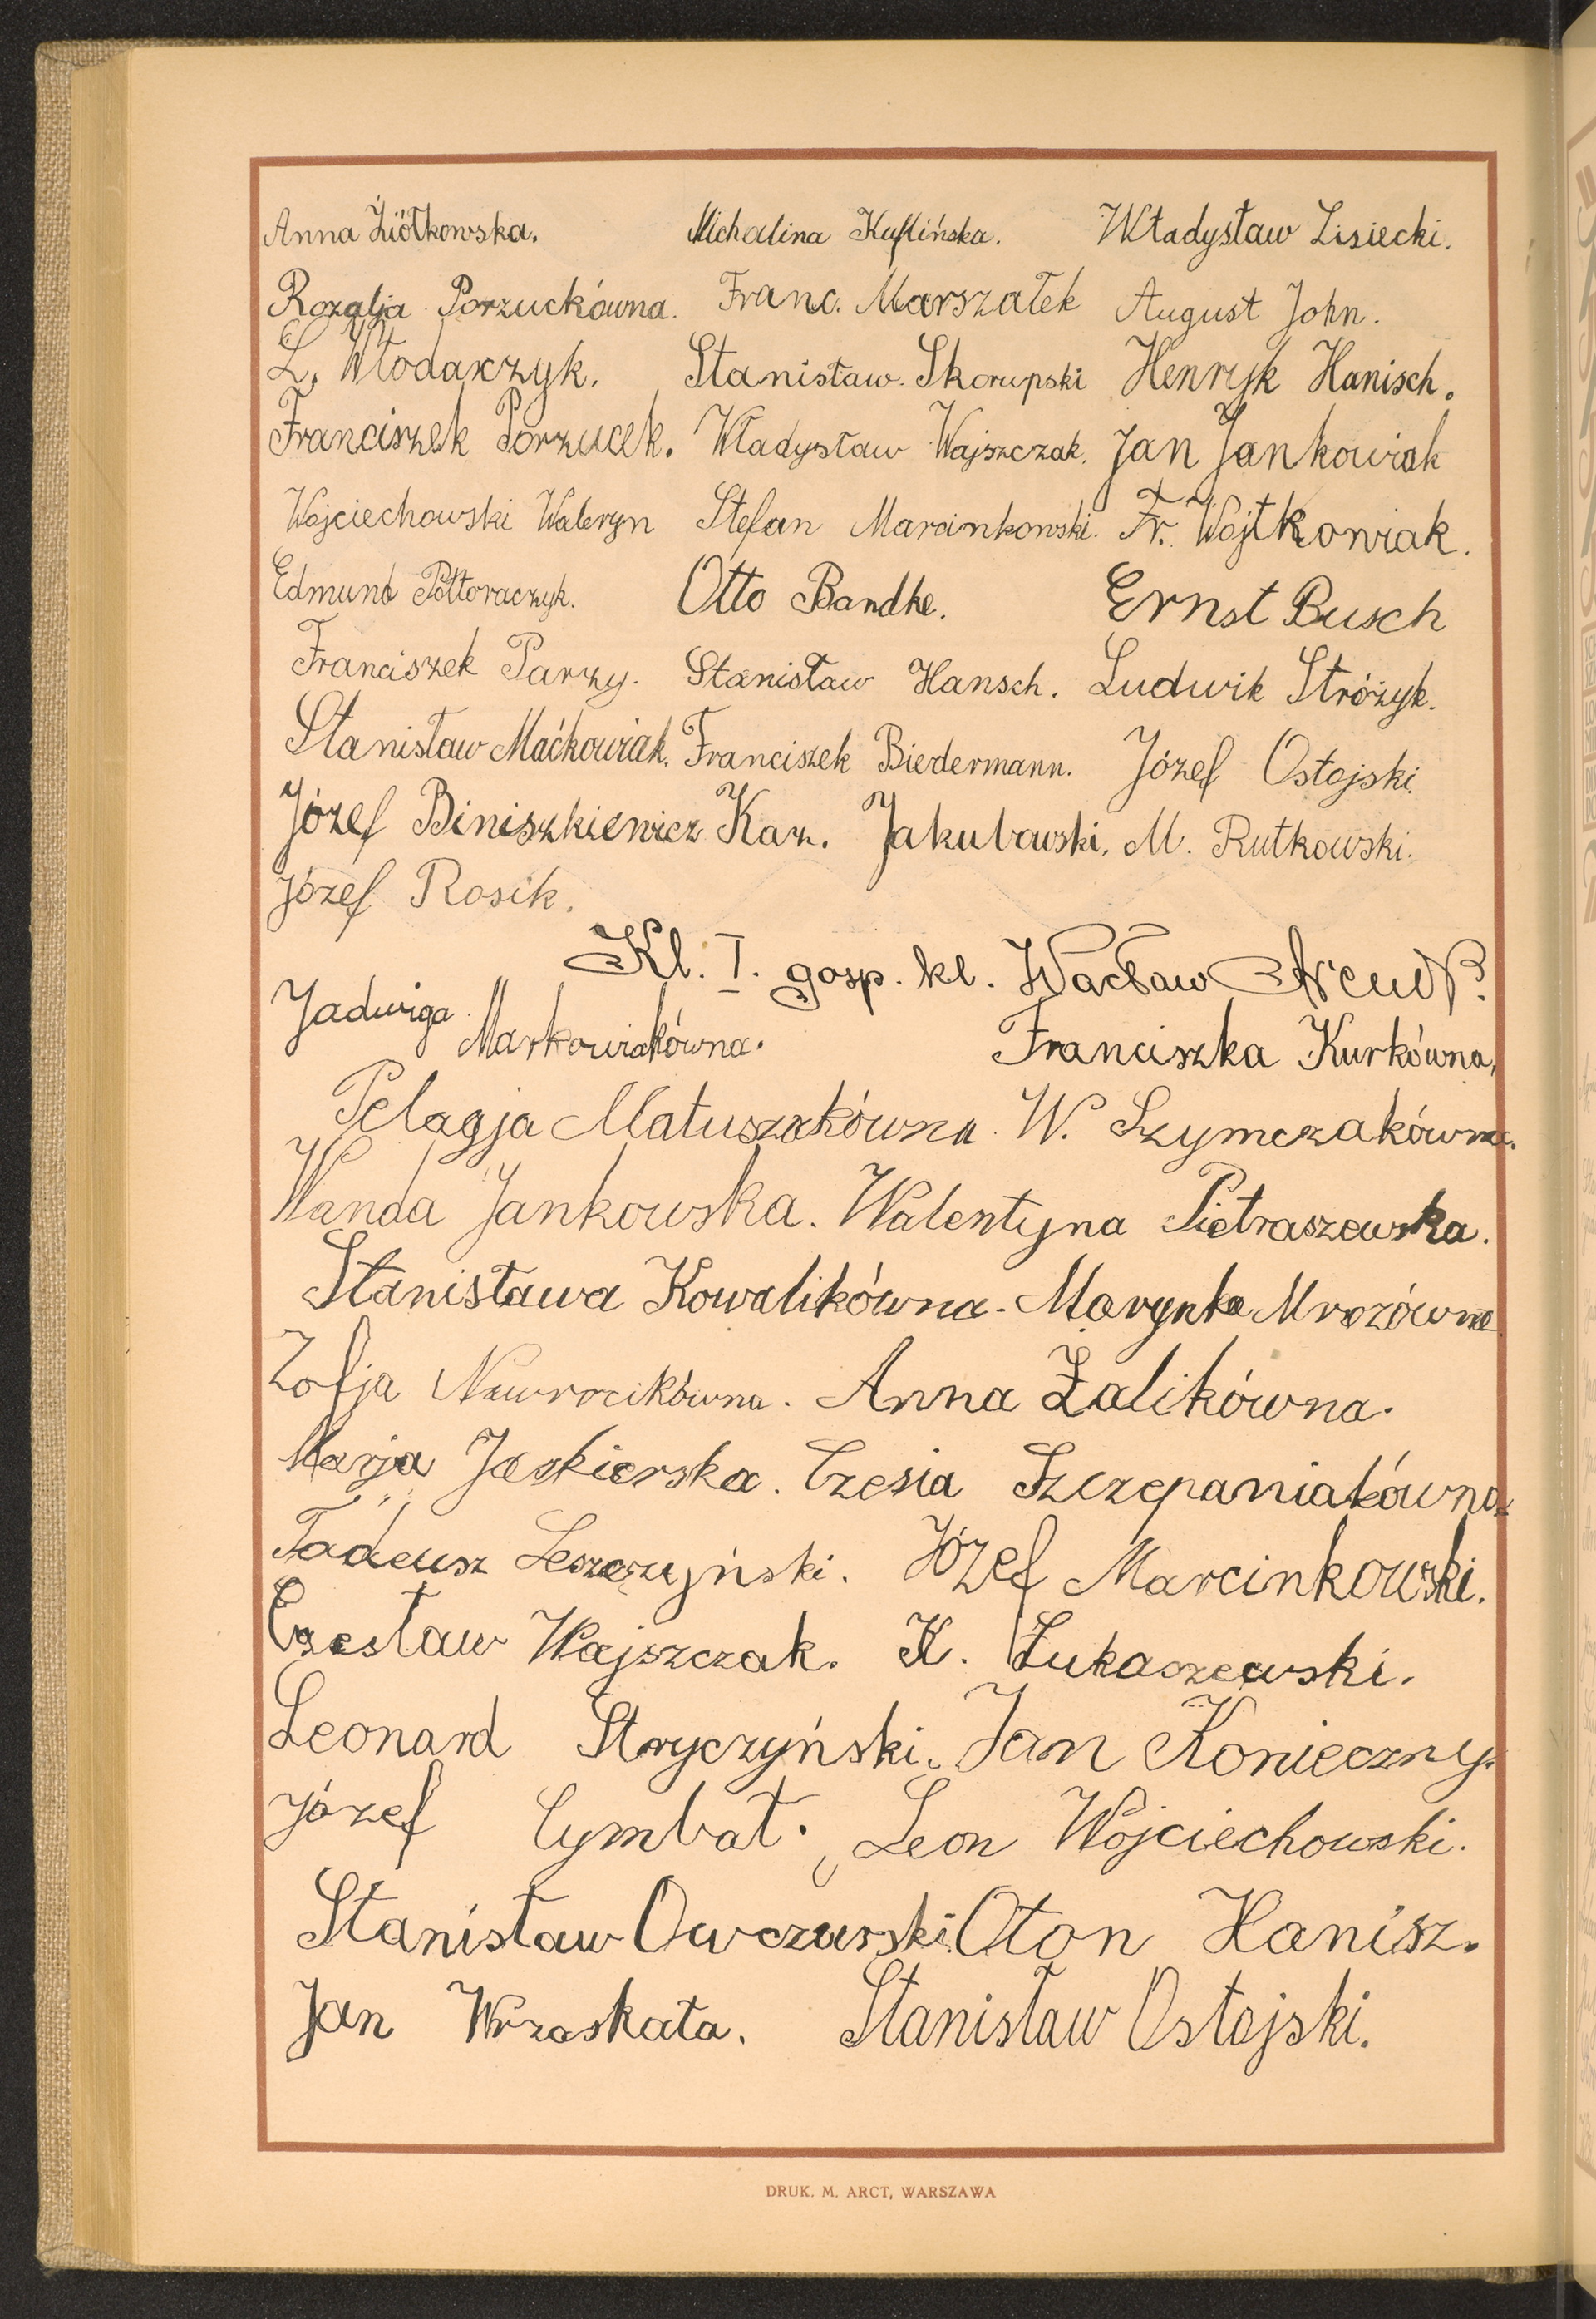 Anna Ziółkowska. Michalina Kuflińska. Władysław Lisiecki.
Rozalja Porzuckówna. Franc. Marszałek August John.
L. Włodarzyk. Stanisław Skorupski Henryk Hanisch.
Franciszek Porzucek. Władysław Wajszczak. Jan Jankowiak
Wojciechowski Waleryn Stefan Marcinkowski. Fr. Wojtkowiak.
Edmund Półtoraczyk. Otto Bandke. Ernst Busch
Franciszek Parzy. Stanisław Hansch. Ludwik Stróżyk.
Stanisław Maćkowiak. Franciszek Biedermann. Józef Ostojski.
Józef Biniszkiewicz Kaz. Jakubowski. M. Rutkowski.
Józef Rosik.
Kl. I. gosp. kl. Wacław
Jadwiga Markowiakówna. Franciszka Kurkówna.
Pelagja Matuszakówna. W. Szymczakówna.
Wanda Jankowska. Walentyna Pietraszewska.
Stanisława Kowalikówna. Marynka Mrozówna
Zofja Nawrocikówna. Anna Żalikówna.
Marja Jaskierska. Czesia Szczepaniakówna
Tadeusz Leszczyński. Józef Marcinkowski.
Czesław Wajszczak. K. Łukaszewski.
Leonard Stryczyński. Jan Konieczny.
Józef Cymbał. Leon Wojciechowski.
Stanisław Owczarski Oton Hanisz.
Jan Wrzaskała. Stanisław Ostojski.
DRUK. M. ARCT, WARSZAWA